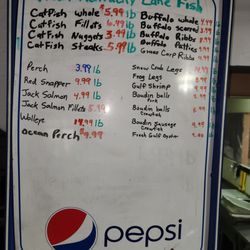 Kentucky Lake Fish
Catfish whole $5.99 lb
Catfish Fillets 6.99 lb
Catfish Nuggets 3.99 lb
Catfish Steaks 5.99 lb
Buffalo whole 4.99
Buffalo scored
Buffalo Ribbs
Buffalo Patties
Grass Carp Ribbs
Perch 3.99 lb
Red Snapper 9.99 lb
Jack Salmon 4.99 lb
Jack Salmon Fillets 5.99 lb
Walleye 14.99 lb
Ocean Perch $9.99
Snow Crab Legs
Frog Legs
Gulf Shrimp
Boudin balls
Pork
Boudin balls
Crawfish
Boudin Sausage
Crawfish
Fresh Gulf Oyster
pepsi